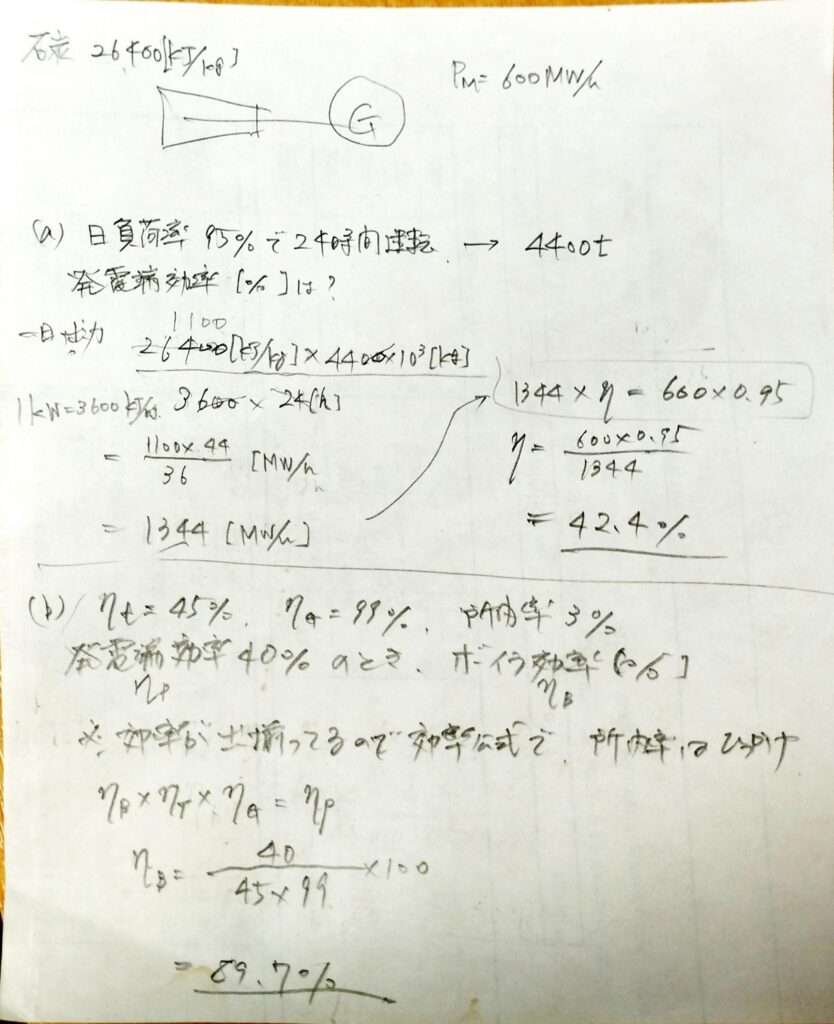 石炭 26,400[kJ/kg]
PM= 600MW/h
G
(a) 日負荷率 95%で24時間運転 → 4400t
発電端効率[%]は?
1100
一日出力 26400[kJ/kg]×4400×10³[kg]
1kW=3600kJ/h 3600 × 24[h]
= 1100×44/36 [MW/h
= 1344 [MW/h]
1344 × η = 600×0.95
η = 600×0.95/1344
= 42.4%
(b) ηt=45%, ηG=99%, 所内率3%
発電端効率40%のとき、ボイラ効率[%]
ηP ηB
※ 効率が出揃ってるので効率公式で、所内率はひっかけ
ηB×ηT×ηG=ηP
ηB= 40/45×99 ×100
= 89.7%